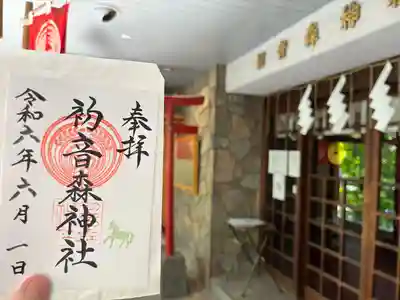 奉拝
初音森神社
令和六年六月一日
初音森神社